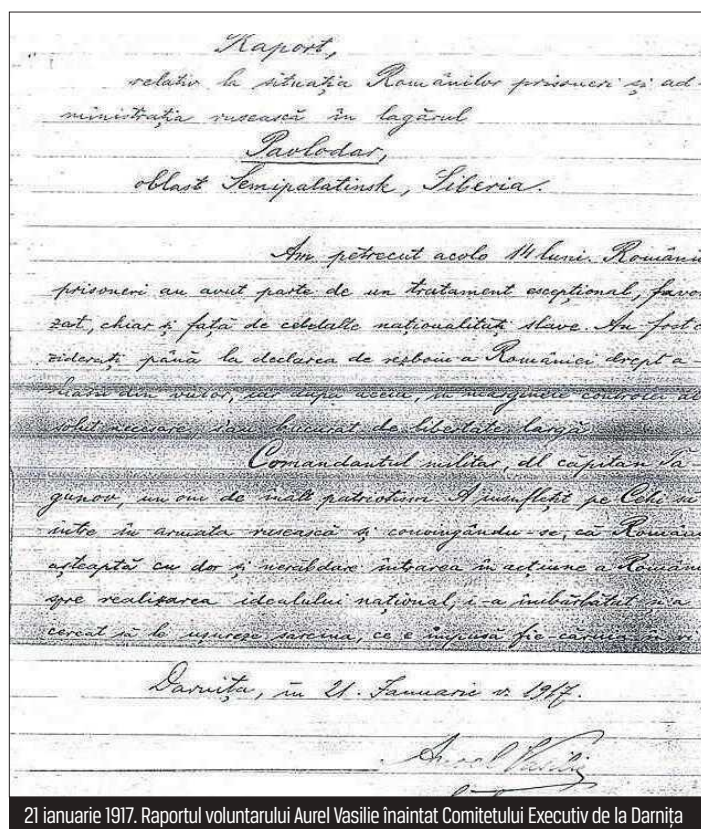 Raport,
relativ la situația Românilor prisoneri și ad-
ministrația rusească în lagărul
Pavlodar,
oblast Semipalatinsk, Siberia.
Am petrecut acolo 14 luni. Românii
prisoneri au avut parte de un tratament escepțional, favo
zat, chiar și față de celelalte naționalități slave. Au fost c
ziderați până la declarea de rezboiu a României drept a-
din viitor, iar după aceia, în marginele controlei ab
solut necesare, s'au bucurat de libertate largă.
Comandantul militar, dl căpitan Ta-
gunov, un om de înalt patriotism. A insuflețit pe Cehi să
intre în armata rusească și convingându-se, că Români
așteaptă cu dor și nerăbdare intrarea în acțiune a Români
spre realizarea idealului național, i-a îmbărbătat și a
cercat să le ușureze sarcina, ce e impusă fie-căruia în
Darnița, în 21. Januarie v. 1917.
Aurel Vasilie
21 ianuarie 1917. Raportul voluntarului Aurel Vasilie înaintat Comitetului Executiv de la Darnița